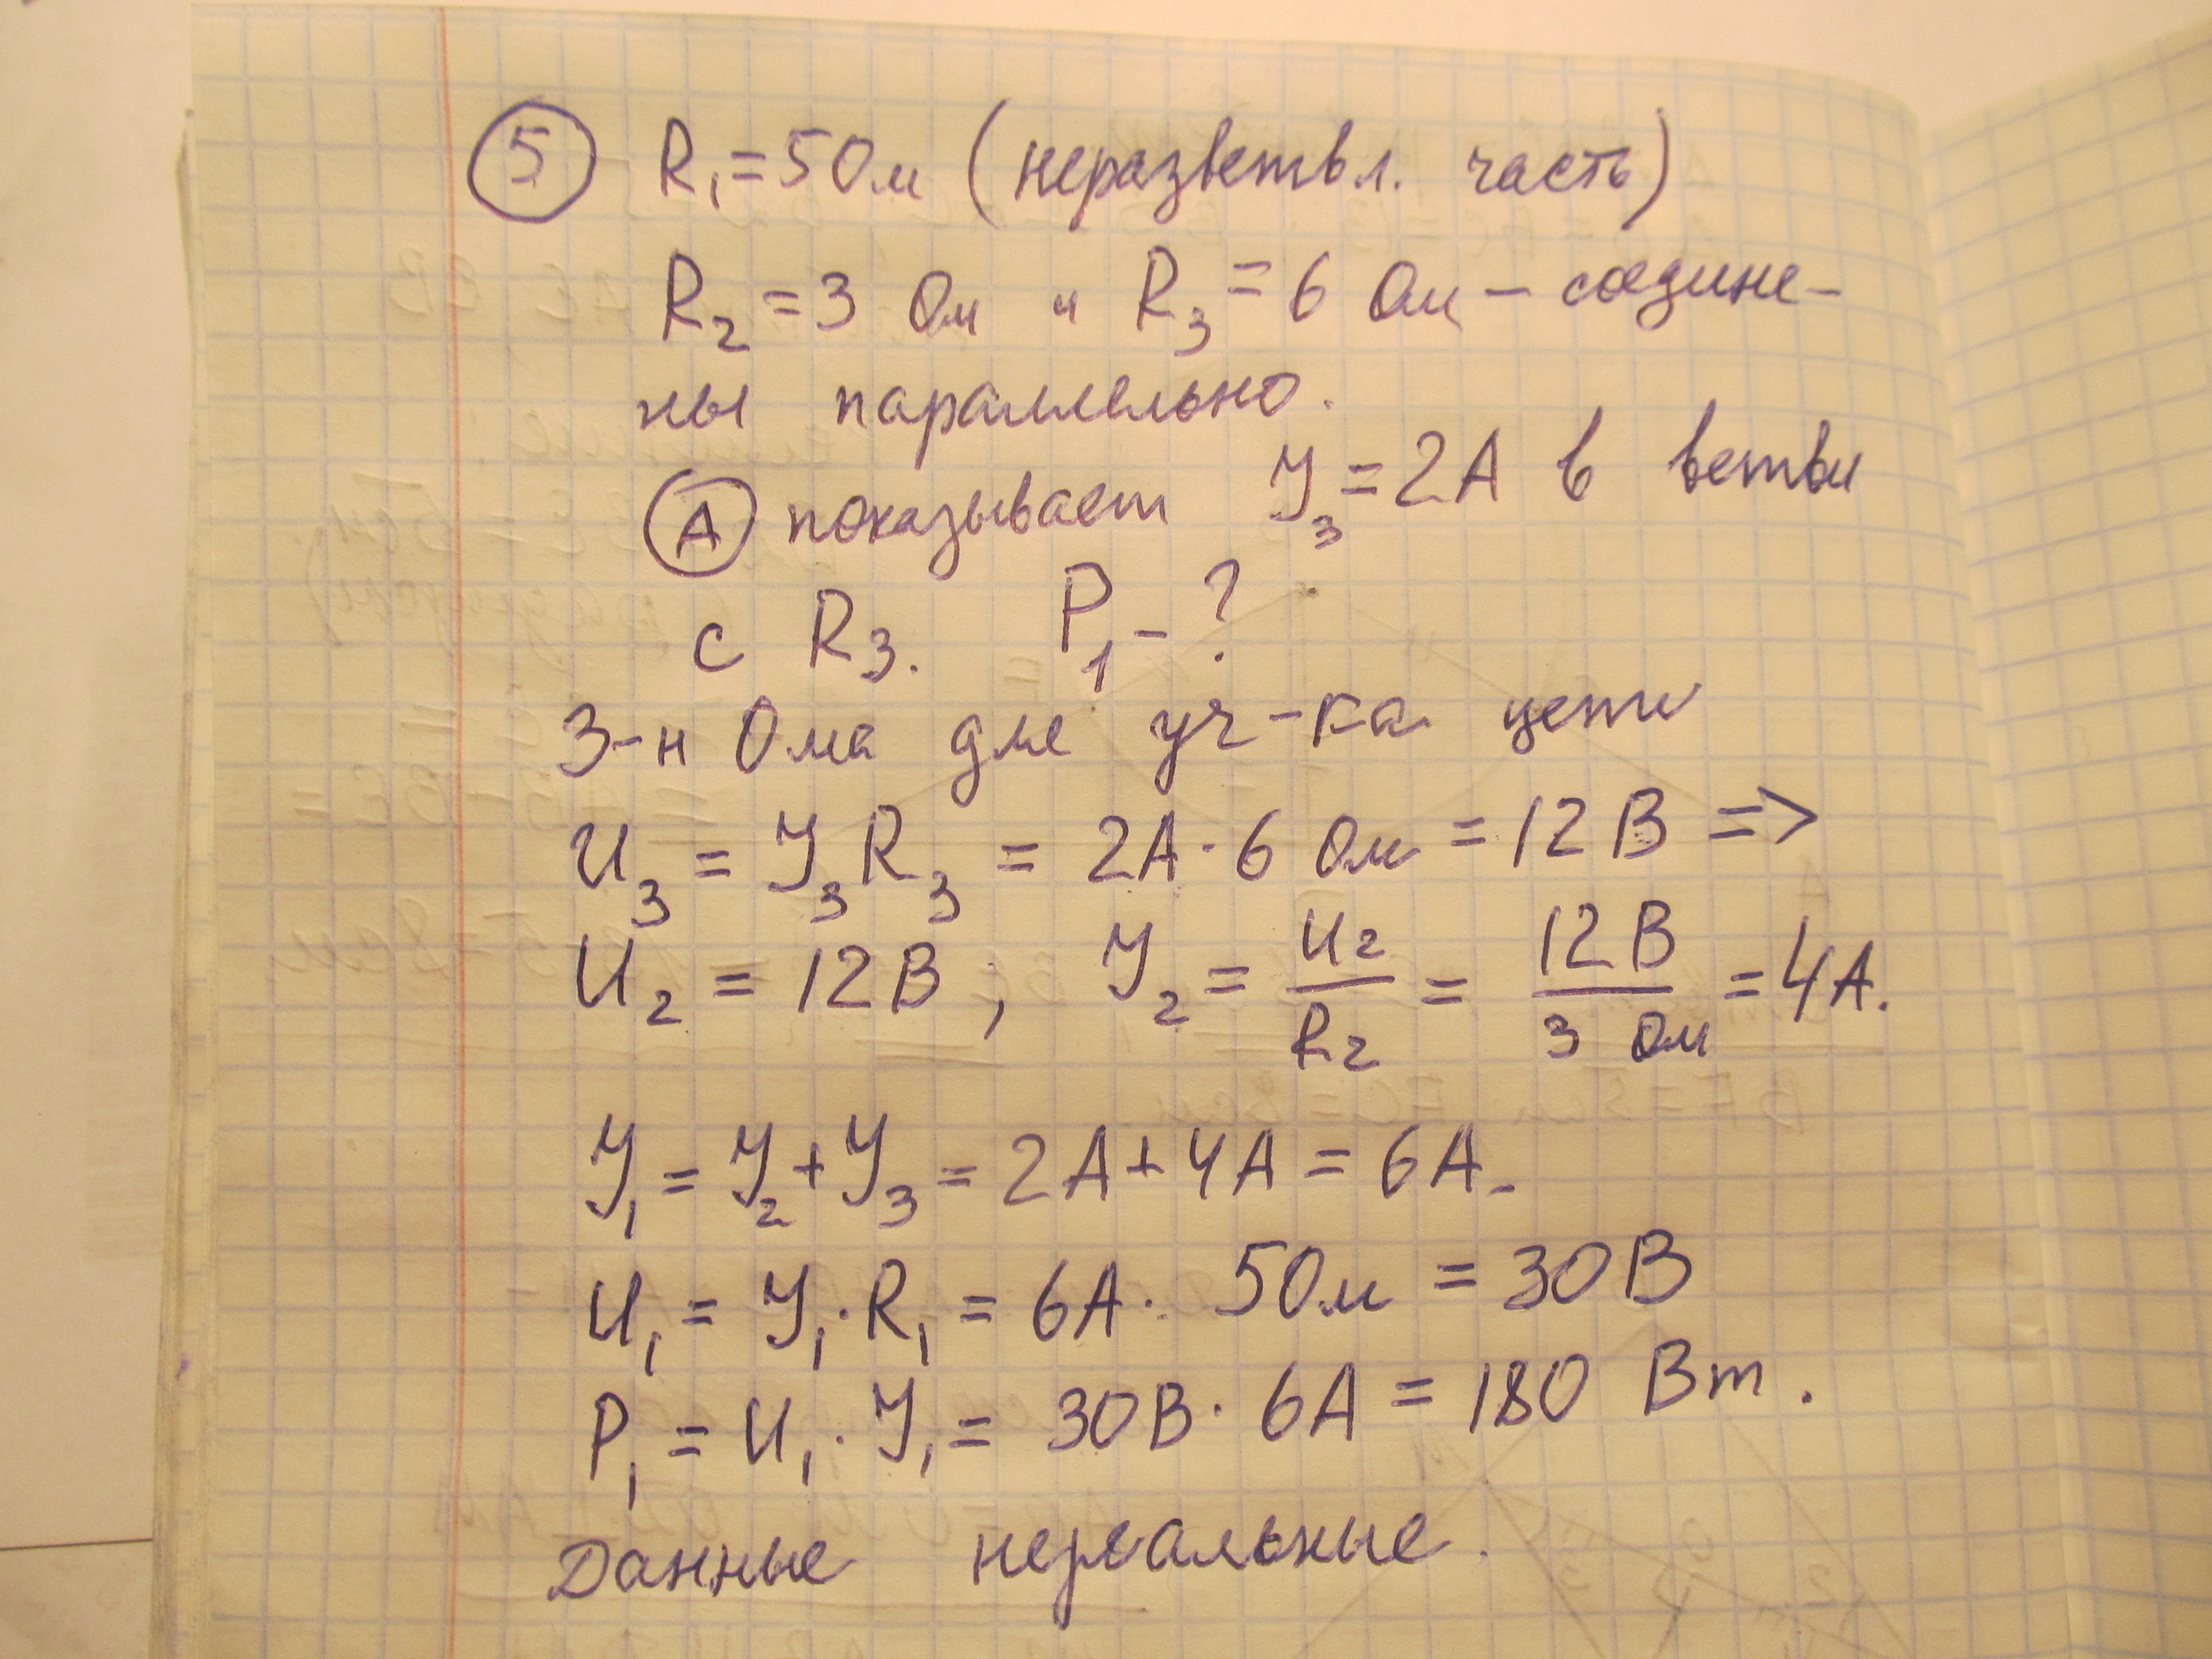 5 R₁ = 5 Ом (неразветвл. часть)
R₂ = 3 Ом и R₃ = 6 Ом – соедине-
ны параллельно.
А показывает J₃ = 2А в ветви
с R₃. P₁ – ?
З-н Ома для уч-ка цепи
U₃ = J₃R₃ = 2А · 6 Ом = 12 В =>
U₂ = 12 В ; J₂ = U₂/R₂ = 12 В/3 Ом = 4А.
J₁ = J₂ + J₃ = 2А + 4А = 6А.
U₁ = J₁ · R₁ = 6А · 5 Ом = 30 В
P₁ = U₁ · J₁ = 30 В · 6А = 180 Вт.
Данные нереальные.